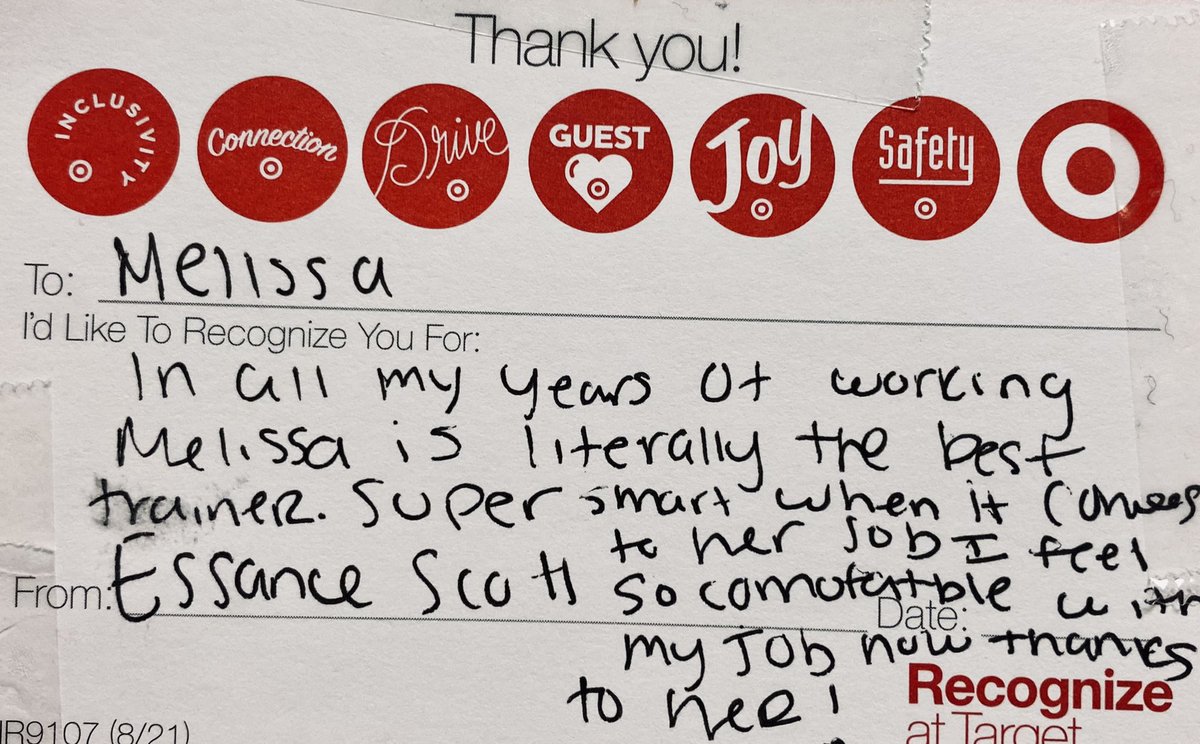 Thank you!
INCLUSIVITY
Connection
Drive
GUEST
Joy
Safety
To: Melissa
I'd Like To Recognize You For:
In all my years of working
Melissa is literally the best
trainer. Super smart when it comes
to her job I feel
so comufortable with
my job now thanks
to her!
From: Essance Scott
Date:
Recognize
at Target
HR9107 (8/21)